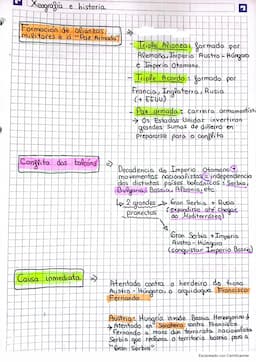 Xeografía e historia
Formación de alianzas
militares e a "Paz Armada"
- Triple Alianza: formada por
Alemaña, Imperio Austro-Húngaro
e Imperio Otomano
- Triple Acordo: formada por
Francia, Inglaterra, Rusia
(+ EEUU)
- Paz armada: carreira armamentística
→ Os Estados Unidos investiron
grandes sumas de diñeiro en
prepararse para o conflito
Conflito dos balcáns
Decadencia do Imperio Otomano +
movementos nacionalistas → independencia
dos distintos países balcánicos: Serbia,
Bulgaria, Bosnia, Albania, etc
↳ 2 grandes
proxectos
→ Gran Serbia + Rusia
(expandirse ata chegar
ao Mediterráneo)
Gran Serbia + Imperio
Austro-Húngaro
(conquistar Imperio Bosnio)
Causa inmediata
Atentado contra o herdeiro do trono
Austro-Húngaro, o arquiduque Francisco
Fernando
Austria-Hungría invade Bosnia Herzegovina
→ Atentado en Saraievo contra Francisco
Fernando a mans dun terrorista nacionalista
Serbio que reclama o territorio bosnio para a
"Gran Serbia"
Escaneado con CamScanner